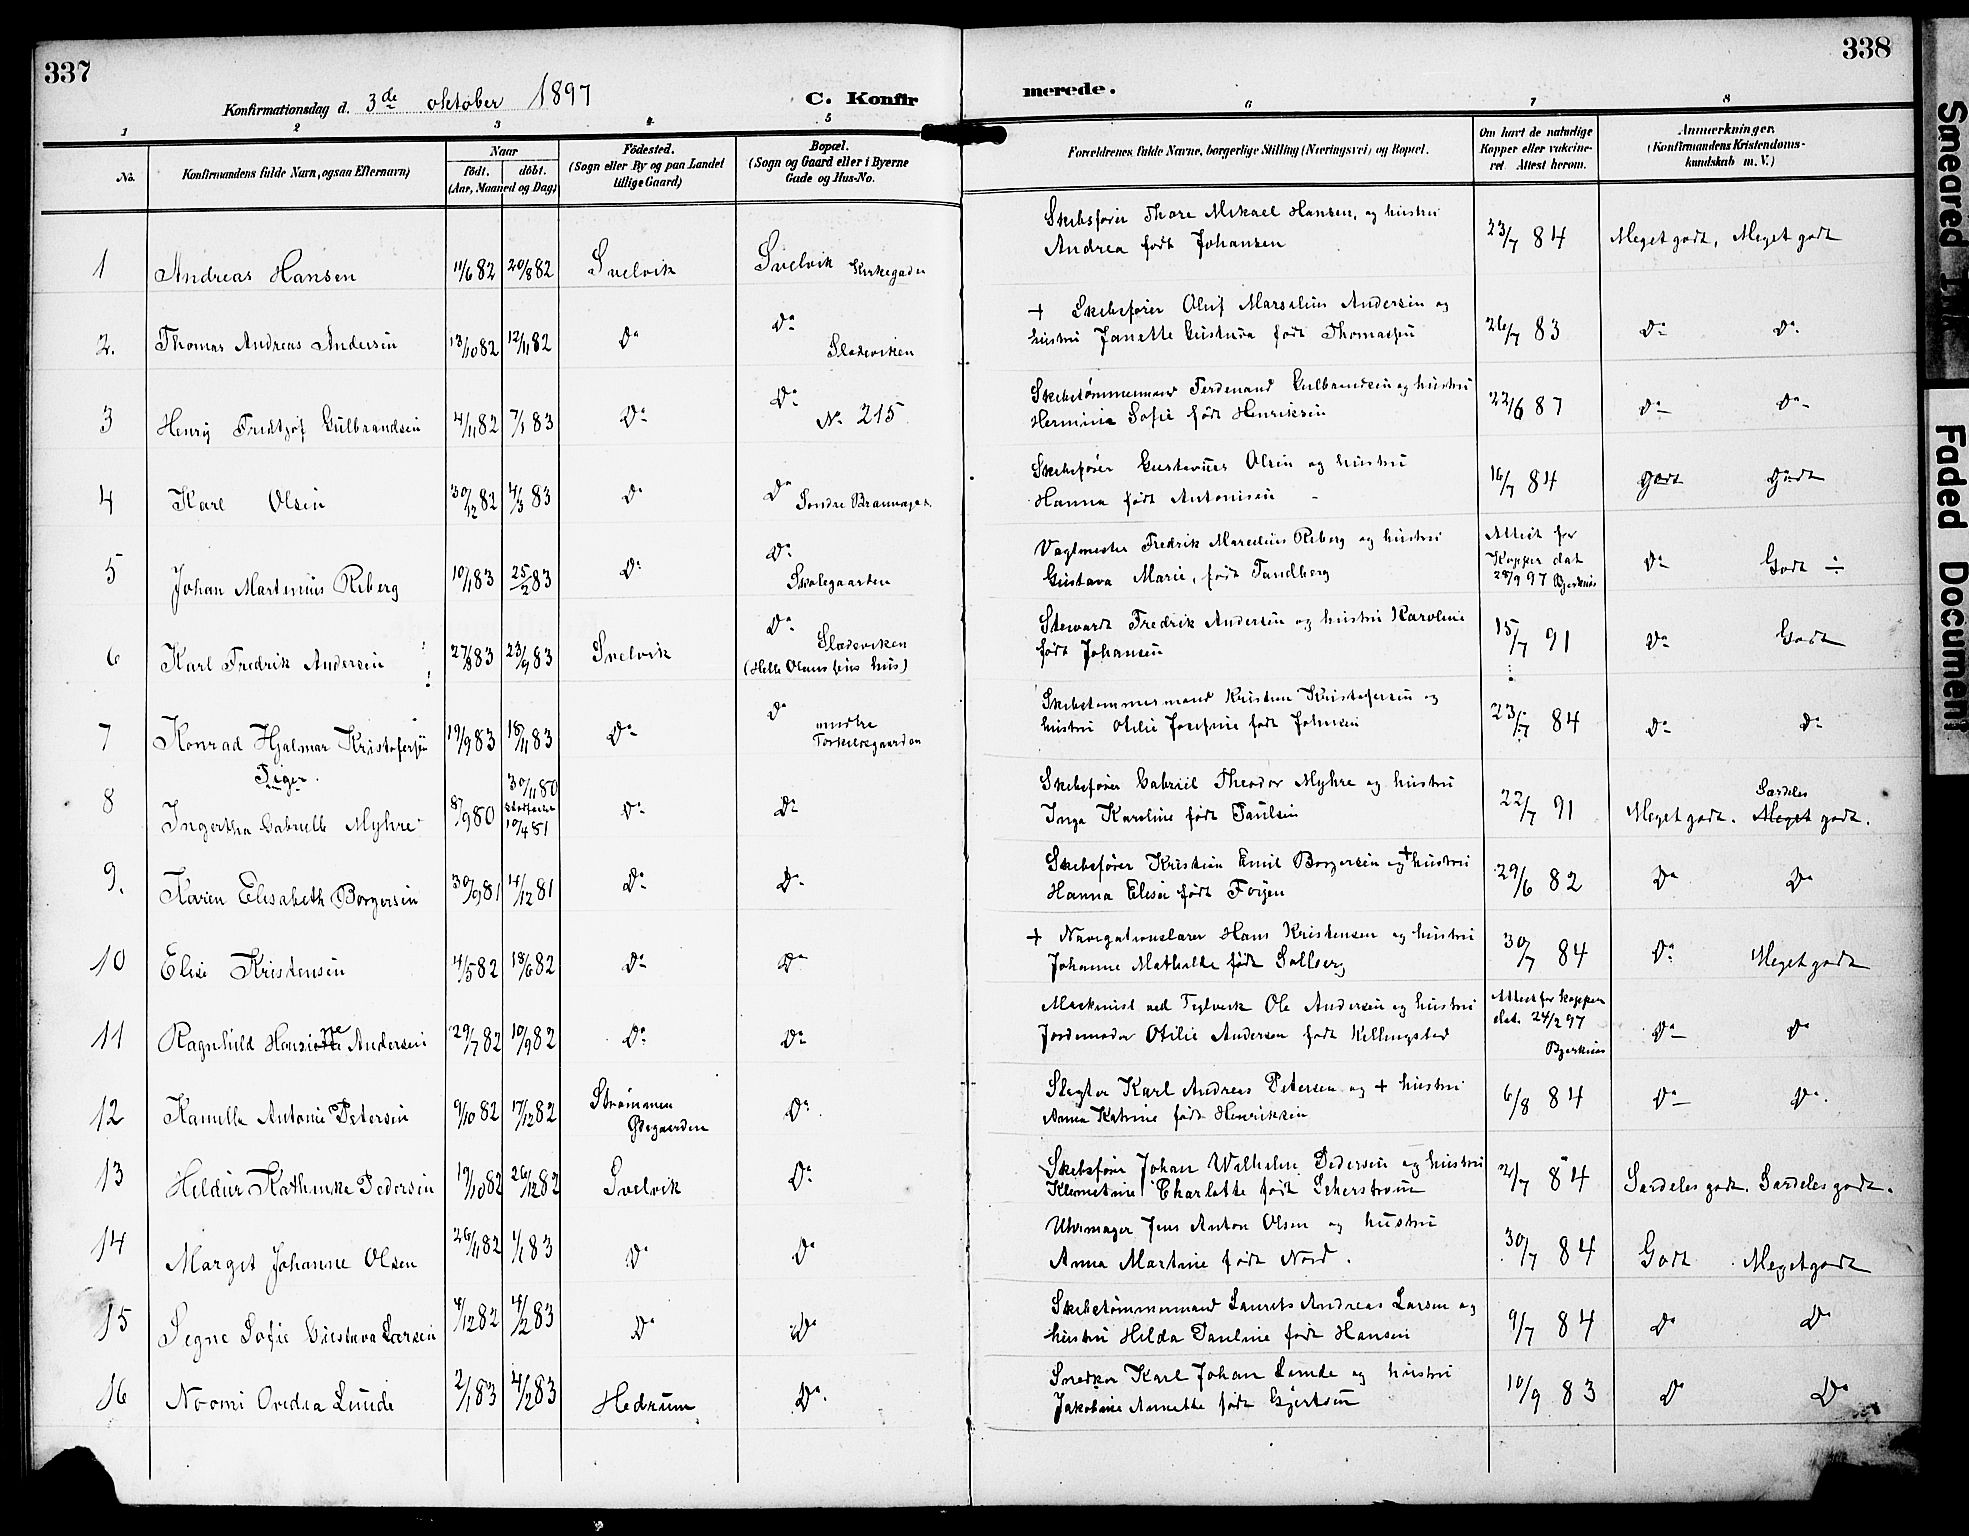 337
338
Konfirmationsdag d. 3de oktober 1897
C. Konfirmerede.
1 2 3 4 5 6 7 8
No.
Konfirmandens fulde Navn, ogsaa Efternavn)
Naar
født. døbt.
(Aar, Maaned og Dag)
Födested.
(Sogn eller By og paa Landet
tillige Gaard)
Bopæl.
(Sogn og Gaard eller i Byerne
Gade og Hus-No.
Forældrenes fulde Navne, borgerlige Stilling (Næringsvei) og Bopæl.
Om havt de naturlige
Kopper eller vakcine-
ret. Attest herom.
Anmærkninger.
(Konfirmandens Kristendoms-
kundskab m. V.)
1 Andreas Hansen 11/6 82 20/8 82 Svelvik Svelvik Kirkegaden
Skibsfører Thore Mikael Hansen, og hustru
Andrea født Johansen 23/7 84 Meget godt, Meget godt
2. Thomas Andreas Andersen 13/10 82 12/11 82 Do Do Sladeviken
+ Skibsfører Oluf Marselius Andersen og
hustru Janette Gustava født Thomassen 26/7 83 Do Do
3 Henry Fredtjof Gulbrandsen 4/11 82 7/1 83 Do Do No 215
Skibstømmermand Ferdenand Gulbrandsen og hustru
Hermine Sofie født Henriksen 22/6 87 Do Do
4 Karl Olsen 30/12 82 4/3 83 Do Do Søndre
Skibsfører Gustavus Olsen og hustru
Hanna født Antonisen 16/7 84 Godt Godt
5 Johan Martinius Reberg 10/1 83 25/2 83 Do Do Skolegaarden
Vagtmester Fredrik Marcelius Reberg og hustru
Gustava Marie, født Tandberg Attest for
Kopper dat
28/9 97 Bjerknes Do Godt ÷
6 Karl Fredrik Andersen 27/8 83 23/9 83 Svelvik Do Sladeviken
(Helle Olaus hus)
Stewardt Fredrik Andersen og hustru Karoline
født Johansen 15/7 91 Do Godt
7 Konrad Hjalmar Kristofersen 19/9 83 18/11 83 Do Do nedre
Torkildsegaarden
Skibstømmermand Kristian Kristofersen og
hustru Otilie Josefine født Johnsen 23/7 84 Do Do
Piger.
8 Ingertha Gabrielle Myhre 8/9 80 30/11 80
stadfæstet
10/4 81 Do Do
Skibsfører Gabriel Theodor Myhre og hustru
Inga Karoline født Paulsen 22/7 91 Meget godt. Særdeles
Meget godt.
9. Karen Elisabeth Borgersen 30/9 81 14/12 81 Do Do
Skibsfører Kristian Emil Borgersen og + hustru
Hanna Elise født Foyen 29/6 82 Do Do
10 Elise Kristensen 4/5 82 18/6 82 Do Do
+ Navigationslærer Hans Kristensen og hustru
Johanne Mathilde født Solberg 30/7 84 Do Meget godt
11 Ragnhild Henriette ne Andersen 29/7 82 10/9 82 Do Do
Maskinist ved Teglverk Ole Andersen og hustru
Jordemoder Otilie Andersen født Kellingstad Attest for kopper
dat. 24/2 97
Bjerknes Do Do
12 Kamilla Antonie Petersen 9/10 82 17/12 82 Strømmen
Ødegaarden Do
Slagter Karl Andreas Petersen og + hustru
Anna Katrine født Henriksen 6/8 84 Do Do.
13 Heldur Kathinka Pedersen 19/10 82 26/12 82 Svelvik Do
Skibsfører Johan Wilhelm Pedersen og hustru
Klemetine Charlotte født Sekerstrøm 2/7 84 Særdeles godt. Særdeles godt.
14 Margit Johanne Olsen 26/11 82 1/1 83 Do Do
Uhrmager Jens Anton Olsen og hustru
Anna Martine født Nord. 30/7 84 Godt Meget godt
15 Segne Sofie Gustava Larsen 4/12 82 4/2 83 Do Do
Skibstømmermand Laurits Andreas Larsen og
hustru Hilda Pauline født Hansen 9/7 84 Do Do
16 Noomi Ovedia Lunde 2/1 83 4/2 83 Hedrum Do.
Snedker Karl Johan Lunde og hustru
Jakobine Annette født Gjertsen 10/9 83 Do Do
Smeared
Faded Document